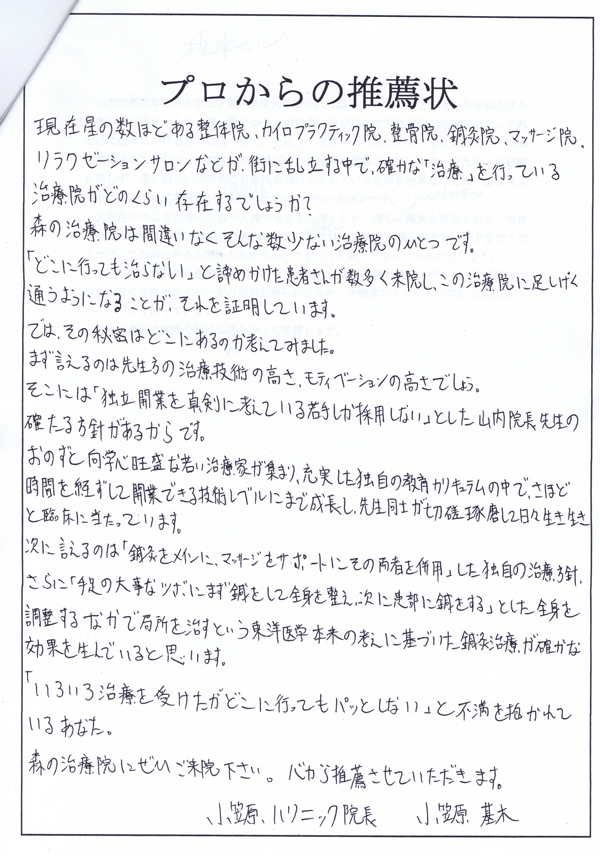 プロからの推薦状
現在星の数ほどある整体院、カイロプラクティック院、整骨院、鍼灸院、マッサージ院、
リラクゼーションサロンなどが、街に乱立する中で、確かな「治療」を行っている
治療院がどのくらい存在するでしょうか？
森の治療院は間違いなくそんな数少ない治療院のひとつです。
「どこに行っても治らない」と諦めかけた患者さんが数多く来院し、この治療院に足しげく
通うようになることが、それを証明しています。
では、その秘密はどこにあるのか考えてみました。
まず言えるのは先生方の治療技術の高さ、モティベーションの高さでしょう。
そこには「独立開業を真剣に考えている若手しか採用しない」とした山内院長先生の
確たる方針があるからです。
おのずと向学心旺盛な若い治療家が集まり、充実した独自の教育カリキュラムの中で、さほど
時間を経ずして開業できる技術レベルにまで成長し、先生同士が切磋琢磨して日々生き生き
と臨床に当たっています。
次に言えるのは「鍼灸をメインに、マッサージをサポートにその両者を併用」した独自の治療方針、
さらに「手足の大事なツボにまず鍼をして全身を整え、次に患部に鍼をする」とした全身を
調整するなかで局所を治すという東洋医学本来の考えに基づいた鍼灸治療が確かな
効果を生んでいると思います。
「いろいろ治療を受けたがどこに行ってもパッとしない」と不満を抱かれて
いるあなた。
森の治療院にぜひご来院下さい。心から推薦させていただきます。
小笠原クリニック院長 小笠原 基木